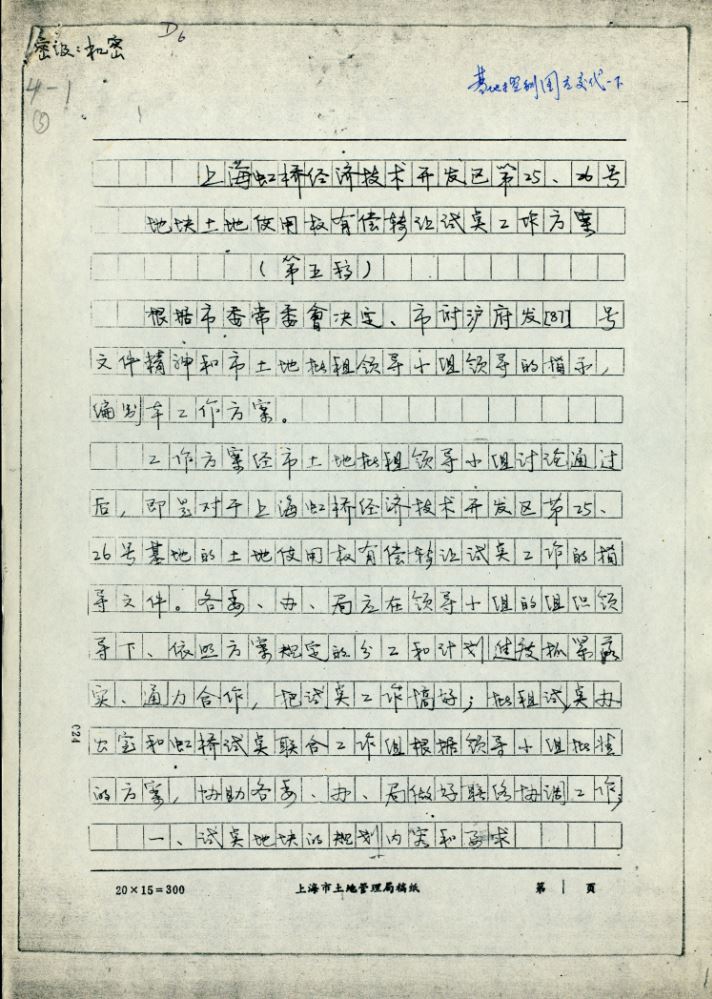 密级：机密
D6
4-1
(5)
上海虹桥经济技术开发区第25、26号
地块土地使用权有偿转让试点工作方案
（第五稿）
根据市委常委會决定、市府沪府发[87] 号
文件精神和市土地批租领导小组领导的指示，
编制本工作方案。
工作方案经市土地批租领导小组讨论通过
后，即是对于上海虹桥经济技术开发区第25、
26号基地的土地使用权有偿转让试点工作的指
导文件。各委、办、局应在领导小组的组织领
导下、依照方案规定的分工和计划进度抓紧落
实、通力合作，把试点工作搞好；批租试点办
公室和虹桥试点联合工作组根据领导小组批准
的方案，协助各委、办、局做好联络协调工作；
一、试点地块的规划内容和要求
024
20×15=300 上海市土地管理局稿纸 第 1 页